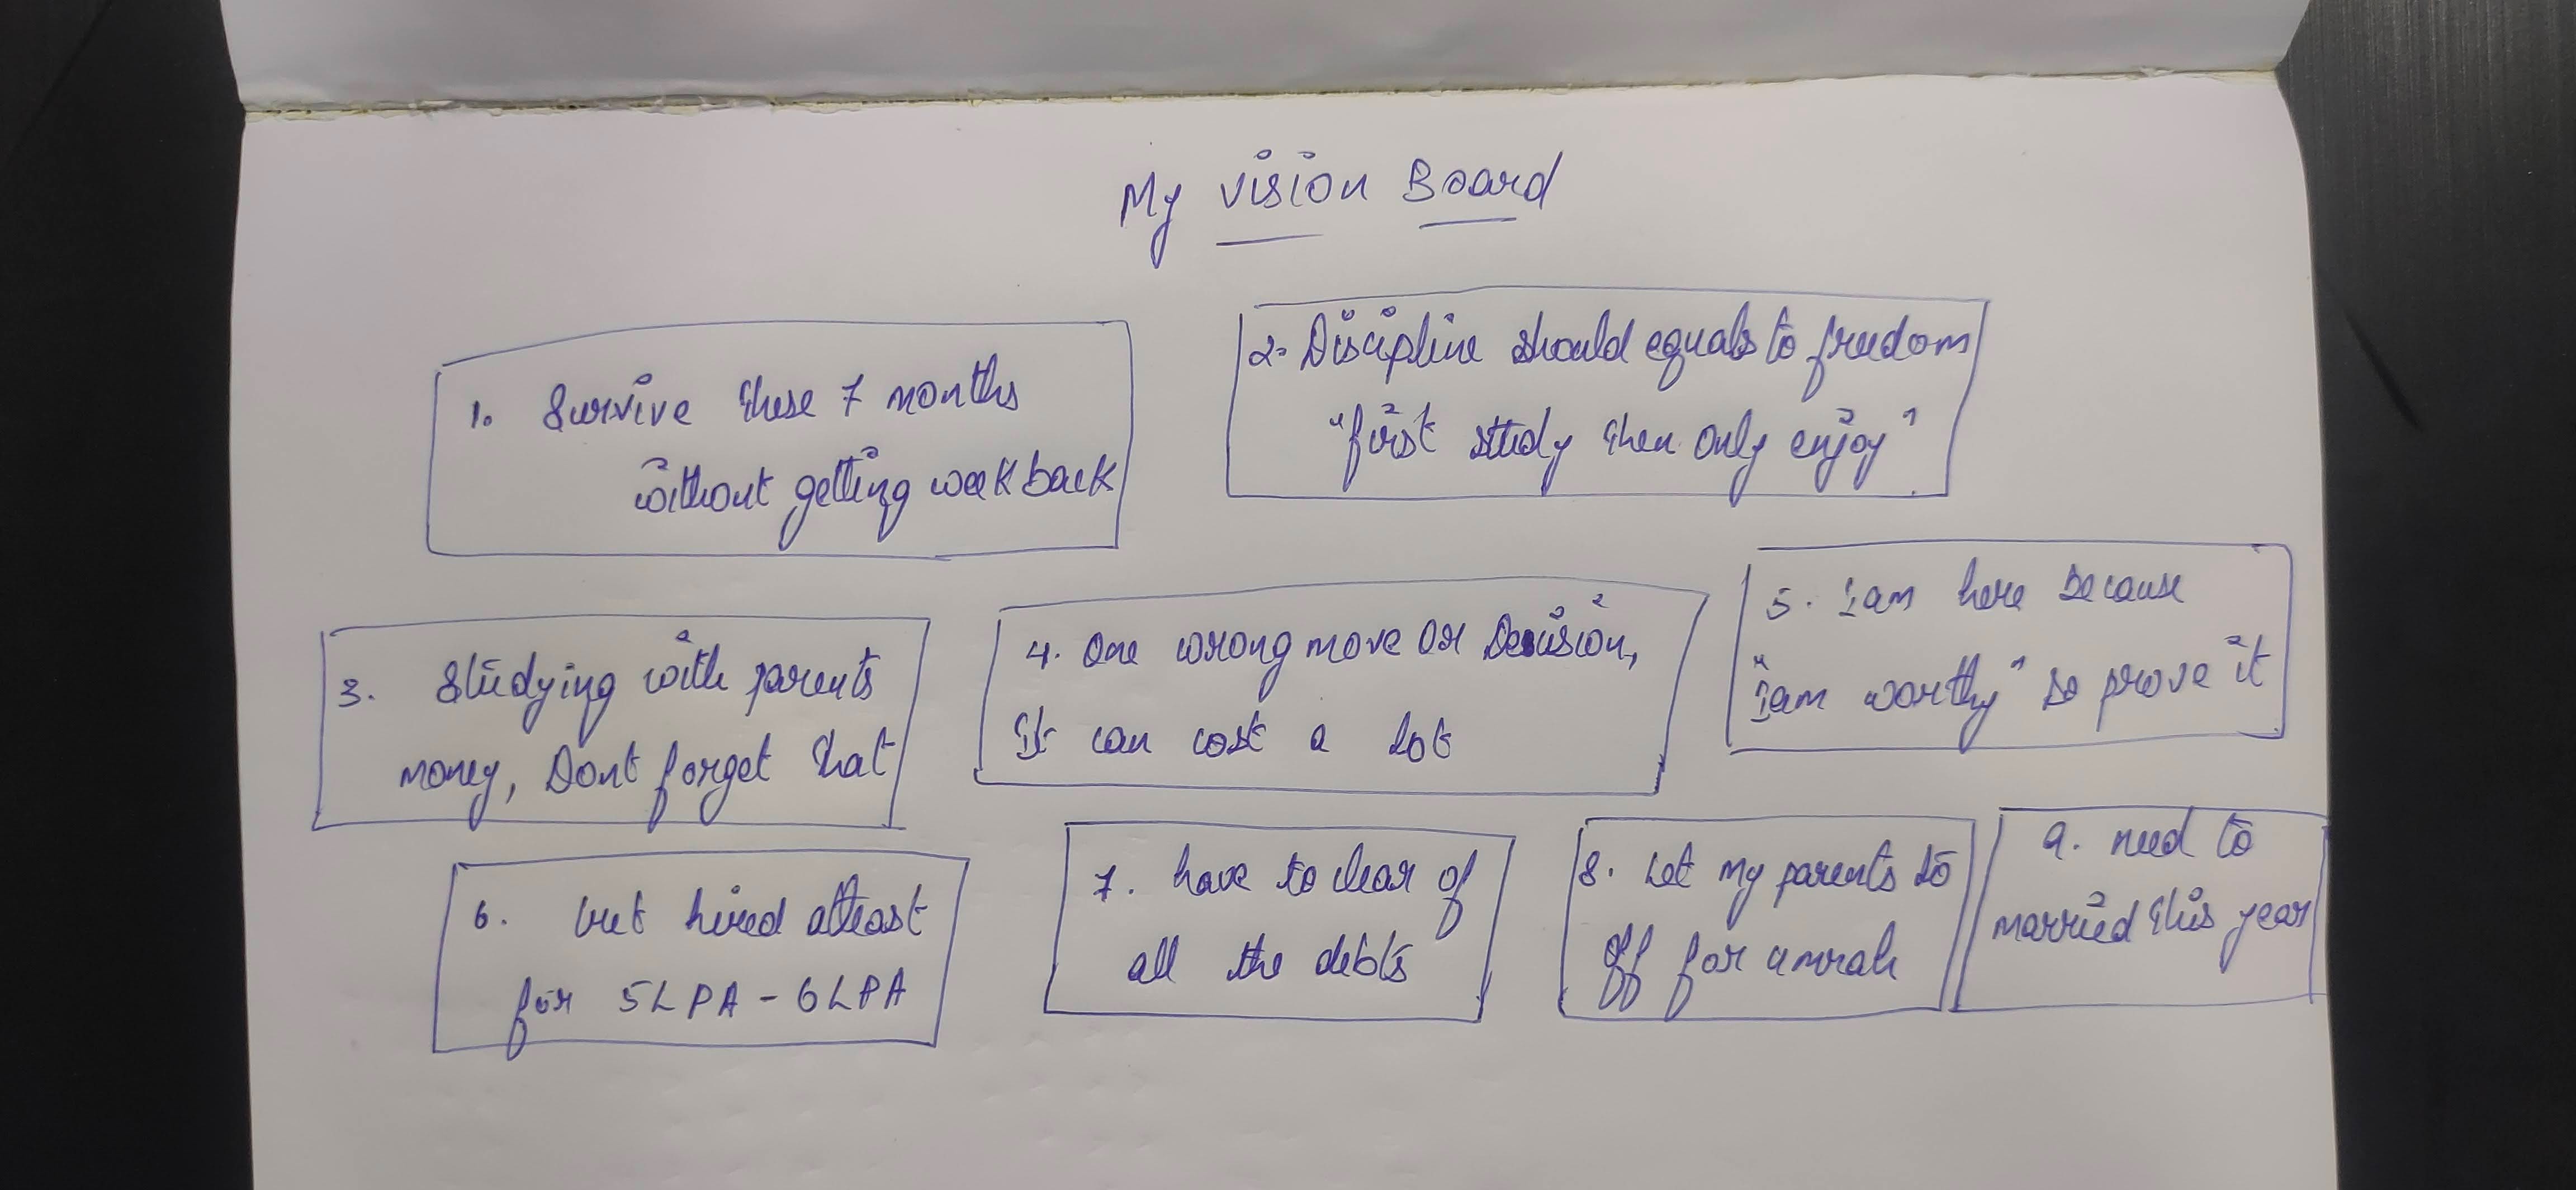 My vision Board
1. Survive these 7 months
without getting week back
2. Discipline should equals to freedom
"first study then only enjoy"
3. Studying with parents
money, Dont forget that
4. One wrong move or Decision,
It can cost a lot
5. I am here because
"I am worthy" so prove it
6. Get hired atleast
for 5LPA - 6LPA
7. have to clear of
all the debts
8. Let my parents to
off for umrah
9. need to
married this year